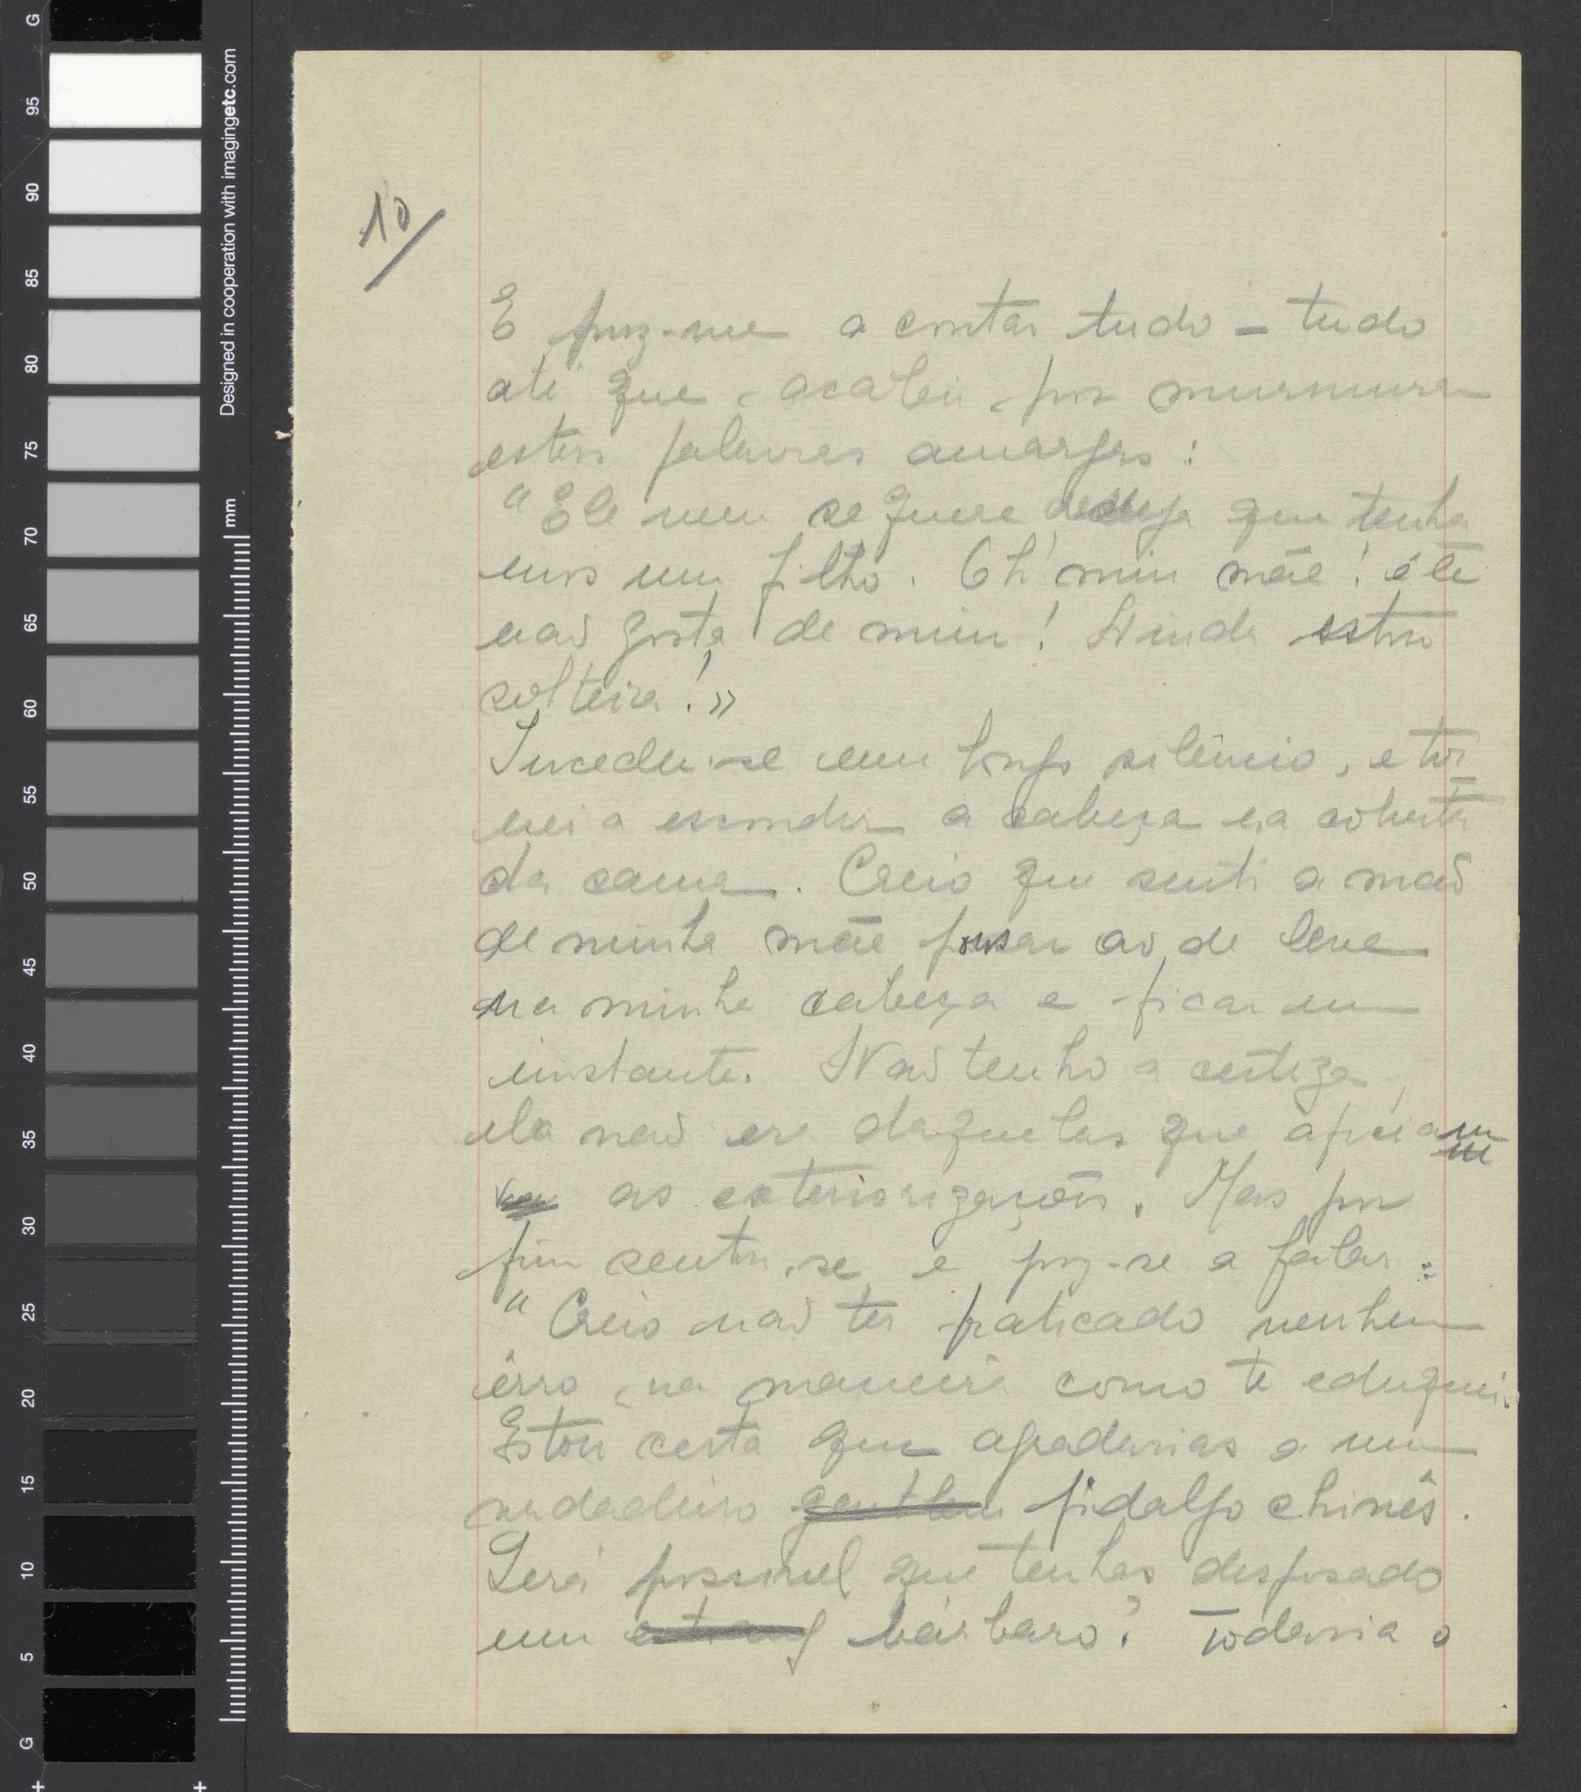 G
95
90
85
80
75
70
65
60
55
50
45
40
35
30
25
20
15
10
5
G
Designed in cooperation with imagingetc.com
mm
10
E puz-me a contar tudo - tudo
até que acabei por murmurar
estas palavras amargas:
"Ele nem sequere deseja que tenha
mos um filho. Oh! min mãe! êle
não gosta de mim! Ainda estou
solteira!»
Sucedeu-se um longo silêncio, e tor
nei a esconder a cabeça na coberta
da cama. Creio que senti a mão
de minha mãe pousar ao de leve
na minha cabeça e ficar um
instante. Não tenho a certeza,
ela não era daquelas que apreciam
as exteriorizações. Mas por
fim sentou-se e poz-se a falar:
"Creio não ter praticado nenhum
êrro na maneira como te eduquei.
Estou certa que agradarias a um
verdadeiro gentlem fidalgo chinês.
Será possivel que tenhas desposado
um estrang bárbaro? Todavia o